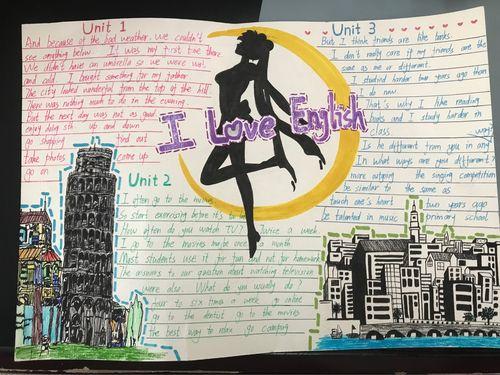 Unit 1
And because of the bad weather. We couldn't
see anything below. It was my first time there
We didn't have an umbrella so we were wet
and cold. I bought something for my father.
The city looked wonderful from the top of the hill
There was nothing much to do in the evening.
But the next day was not as good
enjoy doing sth up and down
go shopping find out
take photos come up
go on
I Love English
Unit 2
I often go to the movies
So start exercising before it's too
How often do you watch TV? Twice a week.
I go to the movies maybe once a month
Most students use it for fun and not for homework
The answers to our question about watching television
were also. What do you usually do?
four to six times a week go online
go to the dentist go to the movies
the best way to relax go camping
Unit 3
But I think friends are like books.
I don't really care if my friends are the
same as me or different.
I studied harder two years ago than
I do now.
That's why I like reading
books and I study harder in
class.
Is he different from you in any
In what ways are you different?
more outgoing the singing competition
be similar to the same as
touch one's heart two years ago
be talented in music primary school